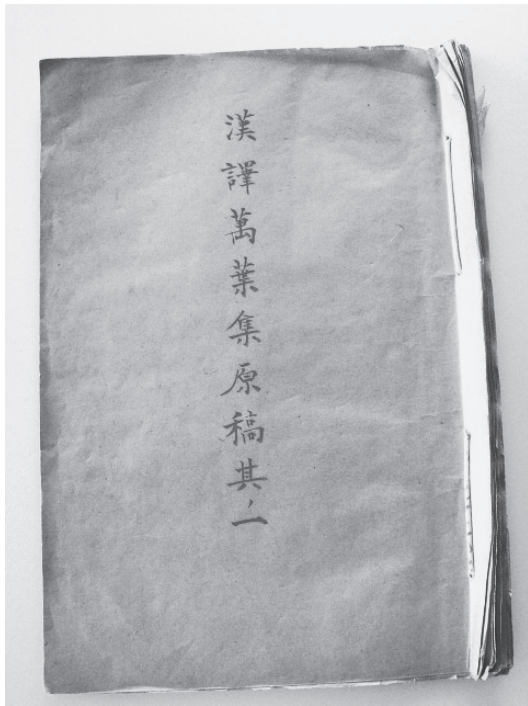 漢譯萬葉集原稿其ノ一